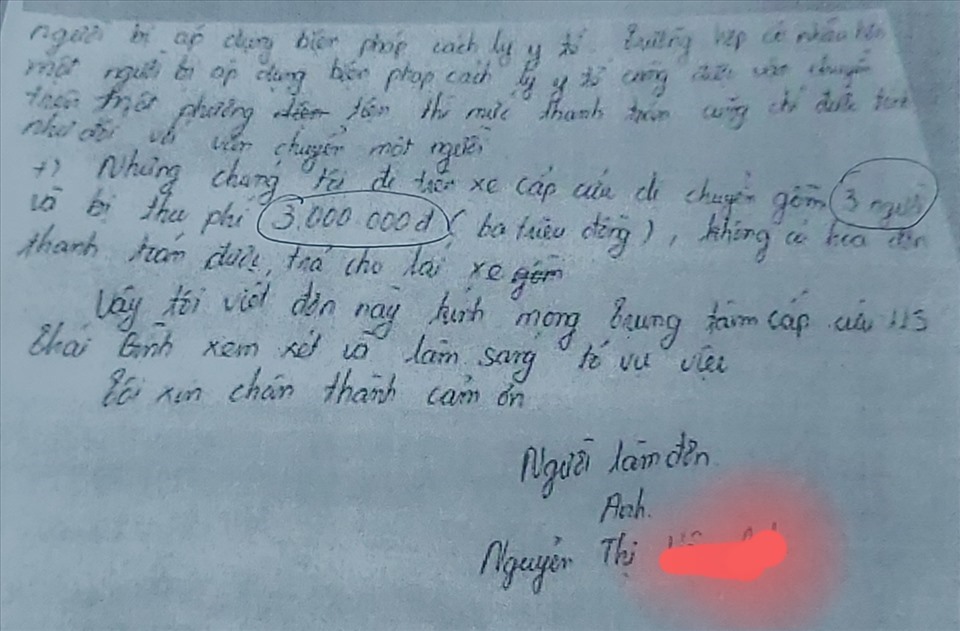 người bị áp dụng biện pháp cách ly y tế. Trường hợp có nhiều hơn
một người bị áp dụng biện pháp cách ly y tế cùng được vận chuyển
trên một phương tiện thì mức thanh toán cũng chỉ được tính
như đối với vận chuyển một người
+) Nhưng chúng tôi đi trên xe cấp cứu di chuyển gồm 3 người
và bị thu phí 3.000.000đ (ba triệu đồng), không có hóa đơn
thanh toán được, trả cho lái xe
Vậy tôi viết đơn này kính mong trung tâm cấp cứu 115
Thái Bình xem xét và làm sáng tỏ vụ việc
Tôi xin chân thành cảm ơn
Người làm đơn
Anh.
Nguyễn Thị